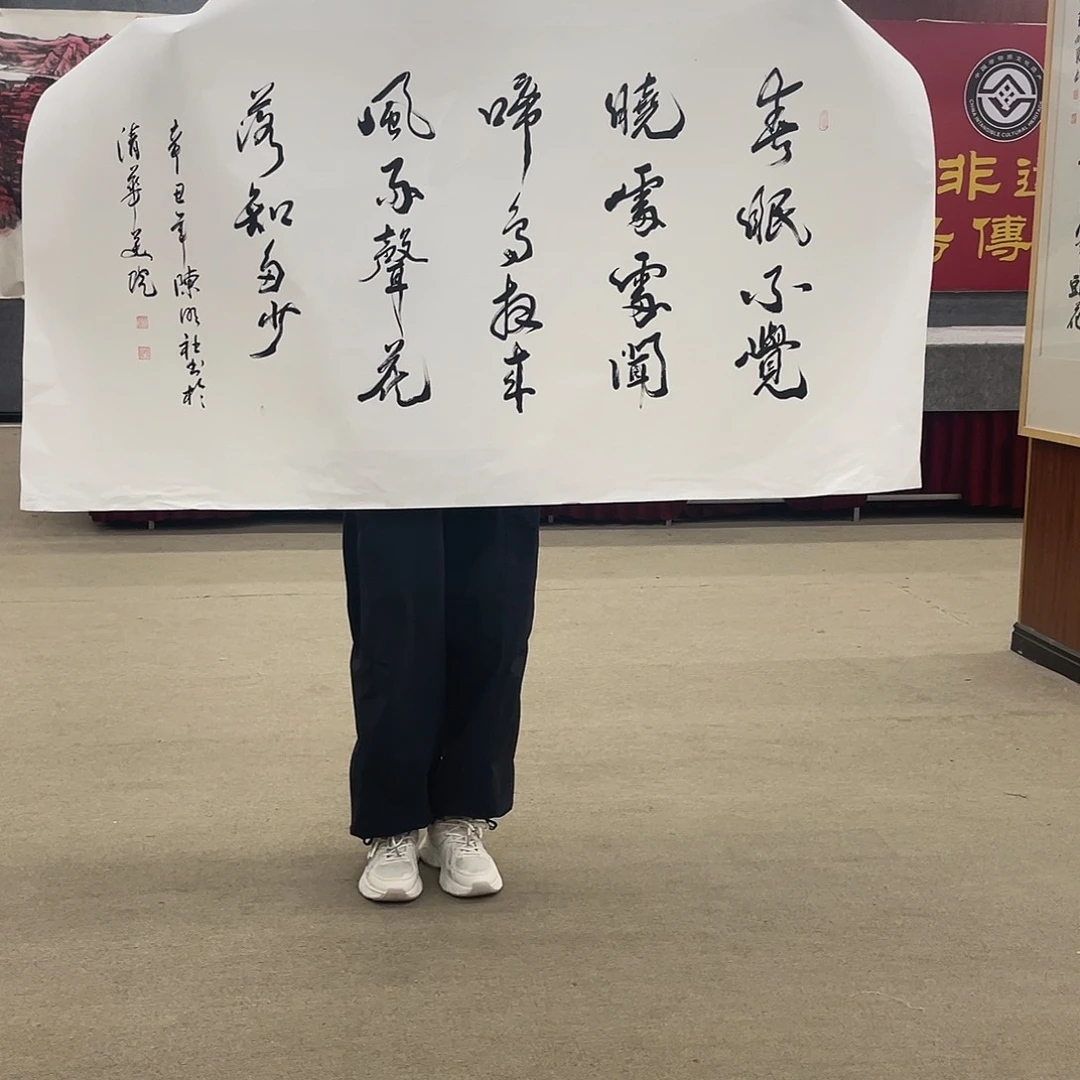 春眠不覺
曉處處聞
啼鳥夜來
風雨聲花
落知多少
辛丑年陳社書於
清華美院
CHINA INTANGIBLE CULTURAL HERITAGE
非
傳